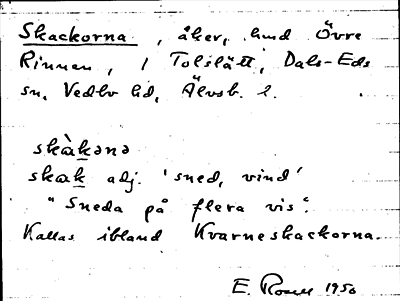 Skackorna, åker, hmd Övre
Rinnen, 1 Tolslätt, Dals-Eds
sn, Vedbo hd, Älvsb. l.
skàkənə
skak adj. 'sned, vind'
"Sneda på flera vis".
Kallas ibland Kvarneskackorna.
E. Rosell 1950